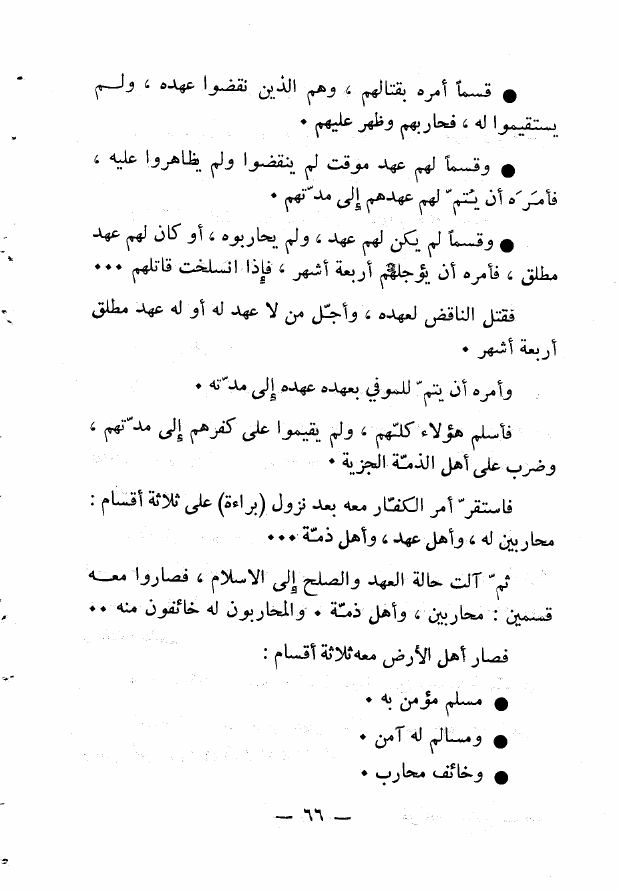 ● قسماً أمره بقتالهم ، وهم الذين نقضوا عهده ، ولــم
يستقيموا له ، فحاربهم وظهر عليهم ٠
● وقسماً لهم عهد موقت لم ينقضوا ولم يظاهروا عليه ،
فأمَرَه أن يُتمّ لهم عهدهم إلى مدّتهم ٠
● وقسماً لم يكن لهم عهد ، ولم يحاربوه ، أو كان لهم عهد
مطلق ، فأمره أن يؤجلهم أربعة أشهر ، فإذا انسلخت قاتلهم ٠٠٠
فقتل الناقض لعهده ، وأجّل من لا عهد له أو له عهد مطلق
أربعة أشهر ٠
وأمره أن يتمّ للموفي بعهده عهده إلى مدّته ٠
فأسلم هؤلاء كلّهم ، ولم يقيموا على كفرهم إلى مدّتهم ،
وضرب على أهل الذمّة الجزية ٠
فاستقرّ أمر الكفّار معه بعد نزول (براءة) على ثلاثة أقسام :
محاربين له ، وأهل عهد ، وأهل ذمّة ٠٠٠
ثمّ آلت حالة العهد والصلح إلى الاسلام ، فصاروا معــه
قسمين : محاربين ، وأهل ذمّة ٠ والمحاربون له خائفون منه ٠٠
فصار أهل الأرض معه ثلاثة أقسام :
● مسلم مؤمن به ٠
● ومسالم له آمن ٠
● وخائف محارب ٠
— ٦٦ —